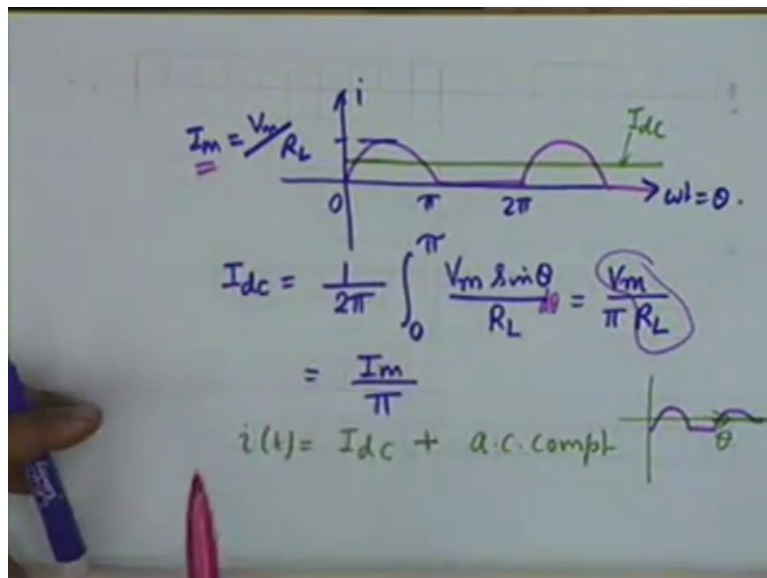 i
I_dc
I_m = V_m/R_L
0 π 2π ωt = θ.
I_dc = 1/2π ∫_0^π V_m sinθ/R_L dθ = V_m/πR_L
= I_m/π
i(t) = I_dc + a.c. compt
θ